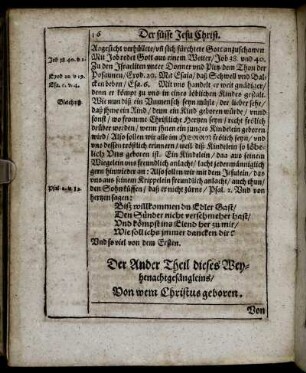 16 Der süsse Jesu Christ.
Angesicht verhüllete/ uñ sich fürchtete Gott anzuschawen
Mit Job redet Gott auß einem Wetter/ Job 38. und 40.
Zu den Israeliten unter Donner und Plitz dem Thon der
Posaunen/ Exod. 20. Mit Esaia/ daß Schwell und Bal-
cken beben/ Esa. 6. Mit uns handelt er weit gnädiger/
denn er kömpt zu uns in eines lieblichen Kindes gestalt.
Wie nun diß ein Unmensch seyn müste/ der lieber sehe/
daß ihme ein Rind/ denn ein Kind geboren würde/ unnd
sonst/ wo fromme Christliche Hertzen seyn/ nicht frölich
drüber worden/ wenn ihnen ein junges Kindlein geboren
wird/ Also sollen wir alle im HERRN frölich seyn/ und
uns dessen tröstlich erinnern/ weil diß Kindlein so lieb-
lich Uns geboren ist. Ein Kindelein/ das auß seinem
Wiegelein uns freundlich anlacht/ lacht jederman
gern hinwieder an: Also sollen wir mit dem Jesulein/ das
uns auß seinem Krippelein freundlich anlacht/ auch thun/
den Sohn küssen/ daß er nicht zürne/ Psal. 2. Und von
hertzen sagen:
Biß willkommen du Edler Gast/
Den Sünder nicht verschmehet hast/
Und kömpst ins Elend her zu mir/
Wie soll ich jmmer dancken dir?
Und so viel von dem Ersten.
Der Ander Theil dieses Wey-
henachtgesängleins/
Von wem Christus geboren.
Von
Job 38. 40.
Exod. 20.
Esa. 6.
Psal. 2.